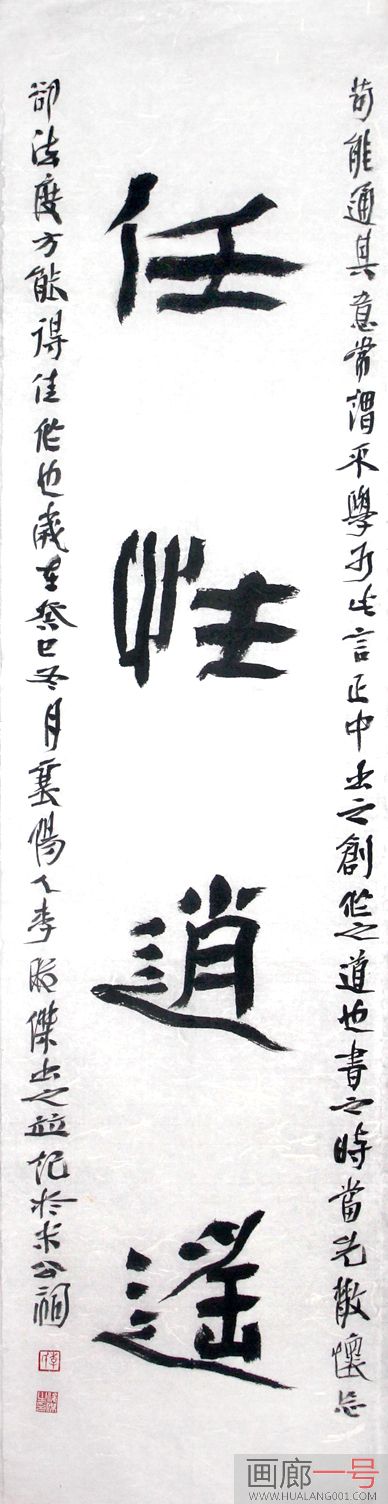 苟能通其意常謂不學可此言正中书之創作之道也書之時當先散懷忘
任性逍遙
卻法度方能得佳作也歲在癸巳冬月襄陽人李傑书之並記於米公祠
画廊一号
WWW.HUALANG001.COM